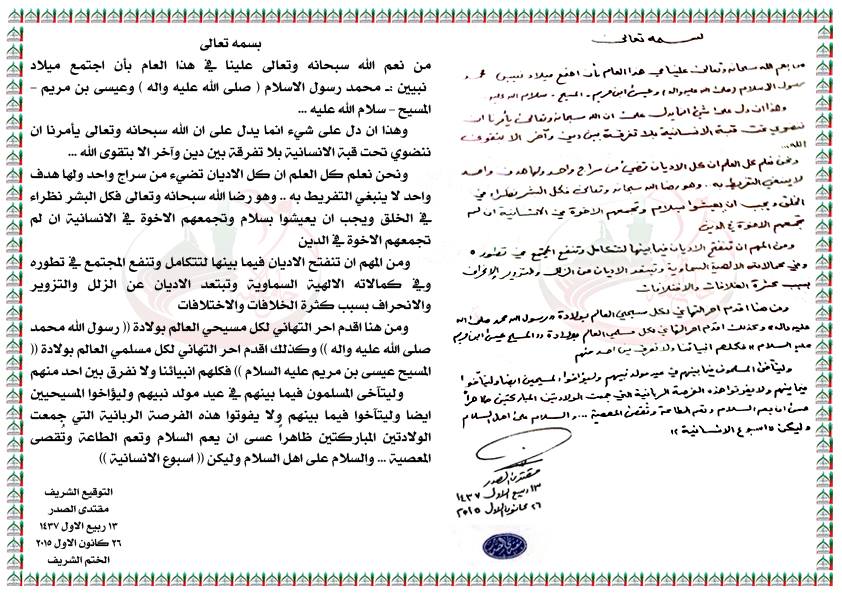 بسمه تعالى
من نعم الله سبحانه وتعالى علينا في هذا العام بأن اجتمع ميلاد
نبيين :ـ محمد رسول الاسلام ( صلى الله عليه واله ) وعيسى بن مريم –
المسيح – سلام الله عليه ...
وهذا ان دل على شيء انما يدل على ان الله سبحانه وتعالى يأمرنا ان
ننضوي تحت قبة الانسانية بلا تفرقة بين دين وآخر الا بتقوى الله ...
ونحن نعلم كل العلم ان كل الاديان تضيء من سراج واحد ولها هدف
واحد لا ينبغي التفريط به .. وهو رضا الله سبحانه وتعالى فكل البشر نظراء
في الخلق ويجب ان يعيشوا بسلام وتجمعهم الاخوة في الانسانية ان لم
تجمعهم الاخوة في الدين
ومن المهم ان تنفتح الاديان فيما بينها لتتكامل وتنفع المجتمع في تطوره
وفي كمالاته الالهية السماوية وتبتعد الاديان عن الزلل والتزوير
والانحراف بسبب كثرة الخلافات والاختلافات
ومن هنا اقدم احر التهاني لكل مسيحي العالم بولادة (( رسول الله محمد
صلى الله عليه واله )) وكذلك اقدم احر التهاني لكل مسلمي العالم بولادة ((
المسيح عيسى بن مريم عليه السلام )) فكلهم انبيائنا ولا نفرق بين احد منهم
وليتآخى المسلمون فيما بينهم في عيد مولد نبيهم وليؤاخوا المسيحيين
ايضا وليتآخوا فيما بينهم ولا يفوتوا هذه الفرصة الربانية التي جمعت
الولادتين المباركتين ظاهرا عسى ان يعم السلام وتعم الطاعة وتُقصى
المعصية ... والسلام على اهل السلام وليكن (( اسبوع الانسانية ))
التوقيع الشريف
مقتدى الصدر
١٣ ربيع الاول ١٤٣٧
٢٦ كانون الاول ٢٠١٥
الختم الشريف
بسمه تعالى
من نعم الله سبحانه وتعالى علينا في هذا العام بأن اجتمع ميلاد نبيين محمد
رسول الاسلام (صلى الله عليه واله) وعيسى ابن مريم - المسيح - سلام الله عليه
وهذا ان دل على شيء انما يدل على ان الله سبحانه وتعالى يأمرنا ان
ننضوي تحت قبة الانسانية بلا تفرقة بين دين وآخر الا بتقوى
الله...
ونحن نعلم كل العلم ان كل الاديان تضيء من سراج واحد ولها هدف واحد
لا ينبغي التفريط به .. وهو رضا الله سبحانه وتعالى فكل البشر نظراء في
الخلق ويجب ان يعيشوا بسلام وتجمعهم الاخوة في الانسانية ان لم
تجمعهم الاخوة في الدين
ومن المهم ان تنفتح الاديان فيما بينها لتتكامل وتنفع المجتمع في تطوره
وفي كمالاته الالهية السماوية وتبتعد الاديان عن الزلل والتزوير والانحراف
بسبب كثرة الخلافات والاختلافات
ومن هنا اقدم احر التهاني لكل مسيحي العالم بولادة (( رسول الله محمد صلى الله
عليه واله )) وكذلك اقدم احر التهاني لكل مسلمي العالم بولادة (( المسيح عيسى ابن مريم
عليه السلام )) فكلهم انبيائنا ولا نفرق بين احد منهم
وليتآخوا المسلمون فيما بينهم في عيد مولد نبيهم وليؤاخوا المسيحيين ايضا وليتآخوا
فيما بينهم ولا يفوتوا هذه الفرصة الربانية التي جمعت الولادتين المباركتين ظاهراً
عسى ان يعم السلام وتعم الطاعة وتُقصى المعصية ... والسلام على اهل السلام
وليكن (( اسبوع الانسانية ))
مقتدى الصدر
١٣ ربيع الاول ١٤٣٧
٢٦ كانون الاول ٢٠١٥